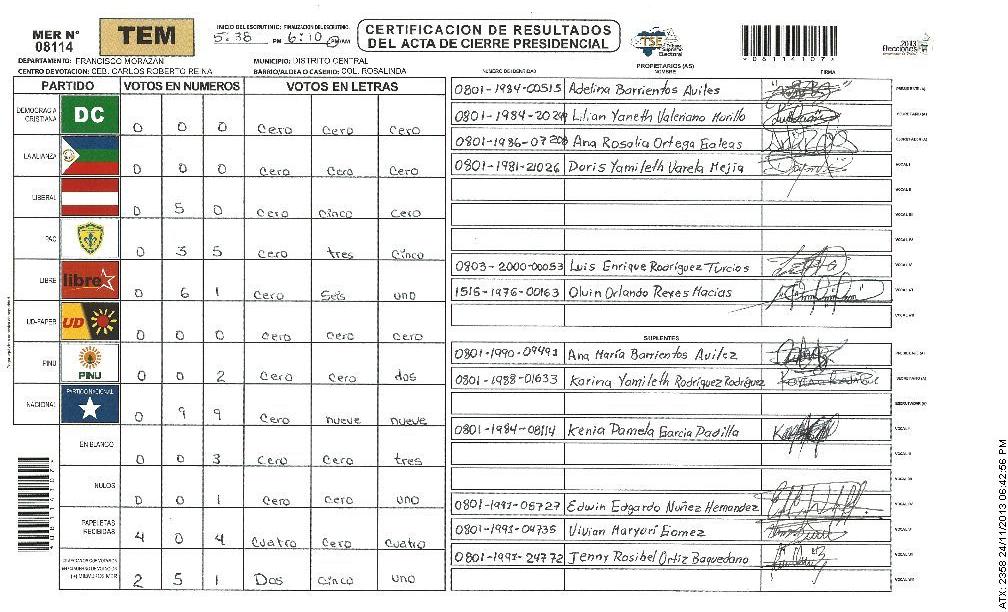 MER N° 08114
TEM
INICIO DEL ESCRUTINIO: 5:38 PM
FINALIZACION DEL ESCRUTINIO: 6:10 AM
CERTIFICACION DE RESULTADOS
DEL ACTA DE CIERRE PRESIDENCIAL
TSE
*08114107*
2013
Elecciones
DEPARTAMENTO: FRANCISCO MORAZAN
MUNICIPIO: DISTRITO CENTRAL
CENTRO DE VOTACION: CEB. CARLOS ROBERTO REINA
BARRIO/ALDEA O CASERIO: COL. ROSALINDA
PROPIETARIOS (AS)
NUMERO DE IDENTIDAD NOMBRE FIRMA
PARTIDO VOTOS EN NUMEROS VOTOS EN LETRAS
DEMOCRACIA CRISTIANA DC 0 0 0 Cero Cero Cero
LA ALIANZA 0 0 0 Cero Cero Cero
LIBERAL 0 5 0 Cero Cinco Cero
PAC 0 3 5 Cero tres Cinco
LIBRE libre 0 6 1 Cero Seis uno
UD-FAPER UD 0 0 0 Cero Cero Cero
PINU PINU 0 0 2 Cero Cero dos
NACIONAL PARTIDO NACIONAL 0 9 9 Cero nueve nueve
EN BLANCO 0 0 3 Cero Cero tres
NULOS 0 0 1 Cero Cero uno
PAPELETAS RECIBIDAS 4 0 4 Cuatro Cero Cuatro
2 5 1 Dos Cinco uno
0801-1984-00515 Adelina Barrientos Aviles PRESIDENTE (A)
0801-1984-2024 Lilian Yaneth Valeriano Murillo SECRETARIO (A)
0801-1986-07208 Ana Rosalia Ortega Galeas ESCRUTADOR (A)
0801-1981-21026 Doris Yamileth Varela Mejia VOCAL I
VOCAL II
VOCAL III
VOCAL IV
0803-2000-00053 Luis Enrique Rodríguez Turcios VOCAL V
1516-1976-00163 Olvin Orlando Reyes Macias VOCAL VI
VOCAL VII
SUPLENTES
0801-1990-09491 Ana María Barrientos Avilez PRESIDENTE (A)
0801-1988-01633 Karina Yamileth Rodríguez Rodríguez SECRETARIO (A)
ESCRUTADOR (A)
0801-1984-08114 Kenia Pamela Garcia Padilla VOCAL I
VOCAL II
VOCAL III
0801-1991-05727 Edwin Edgardo Nuñez Hernandez VOCAL IV
0801-1991-04735 Vivian Maryuri Gomez VOCAL V
0801-1991-24772 Jenny Rosibel Ortiz Baquedano VOCAL VI
VOCAL VII
*08114107*
ATX: 2358 24/11/2013 06:42:56 PM